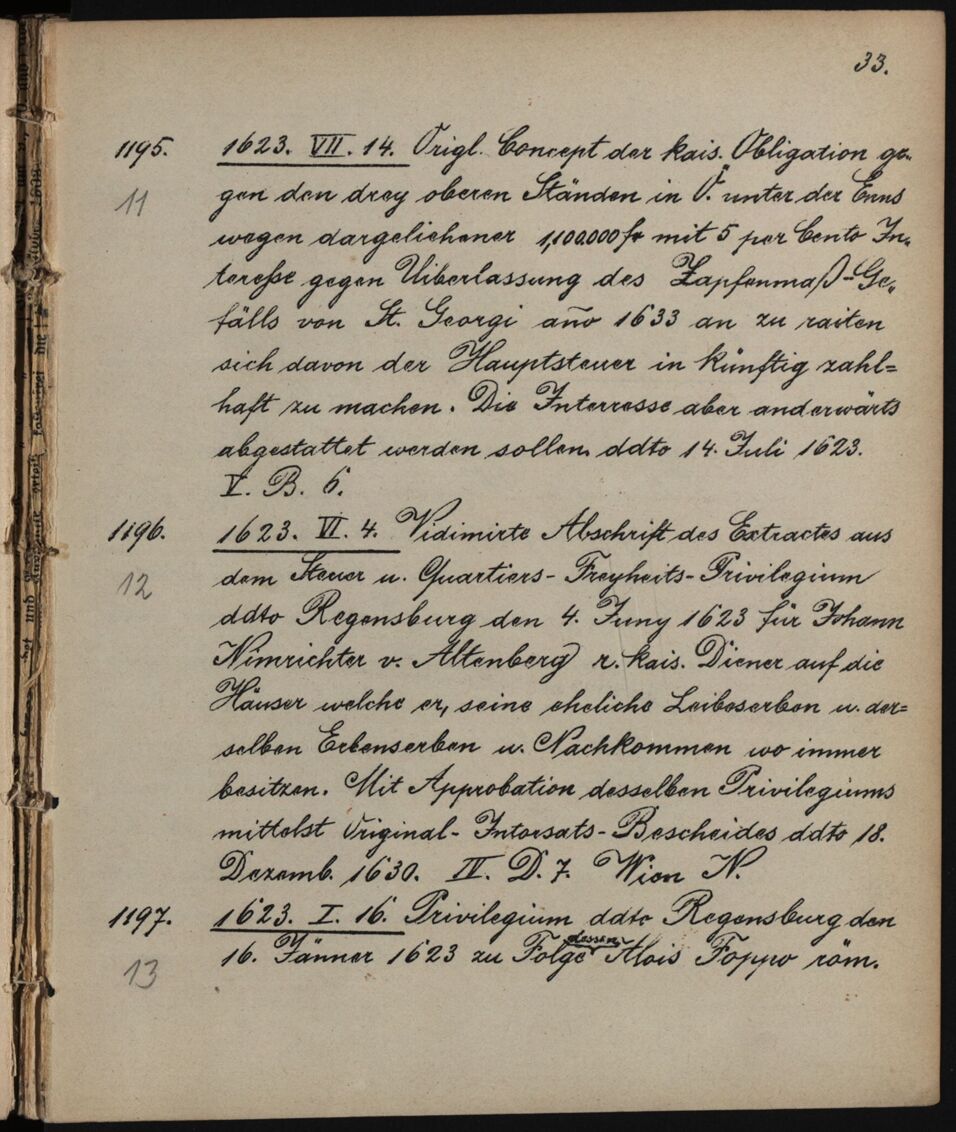 33.
1195. 1623. VII. 14. Origl. Concept der kais. Obligation ge„
11 gen den drey oberen Ständen in Ö. unter der Enns
wegen dargeliehener 1,100.000 fr mit 5 per Cento In„
terehse gegen Uiberlassung des Zapfenmaß-Ge„
fälls von St. Georgi año 1633 an zu raiten
sich davon der Hauptsteuer in künftig zahl=
haft zu machen. Die Interresse aber anderwärts
abgestattet werden sollen. ddto 14. Juli 1623.
V. B. 6.
1196. 1623. VI. 4. Vidimirte Abschrift des Extractes aus
12 dem Steuer u. Quartiers- Freyheits- Privilegium
ddto Regensburg den 4. Juny 1623 für Johann
Nimrichter v. Altenberg r. kais. Diener auf die
Häuser welche er, seine eheliche Leibeserben u. der=
selben Erbenserben u. Nachkommen wo immer
besitzen. Mit Approbation desselben Privilegiums
mittelst Original- Intorsats- Bescheides ddto 18.
Dezemb. 1630. IV. D. 7. Wien N.
1197. 1623. I. 16. Privilegium ddto Regensburg den
13 16. Jänner 1623 zu Folge dessen Alois Foppo röm.